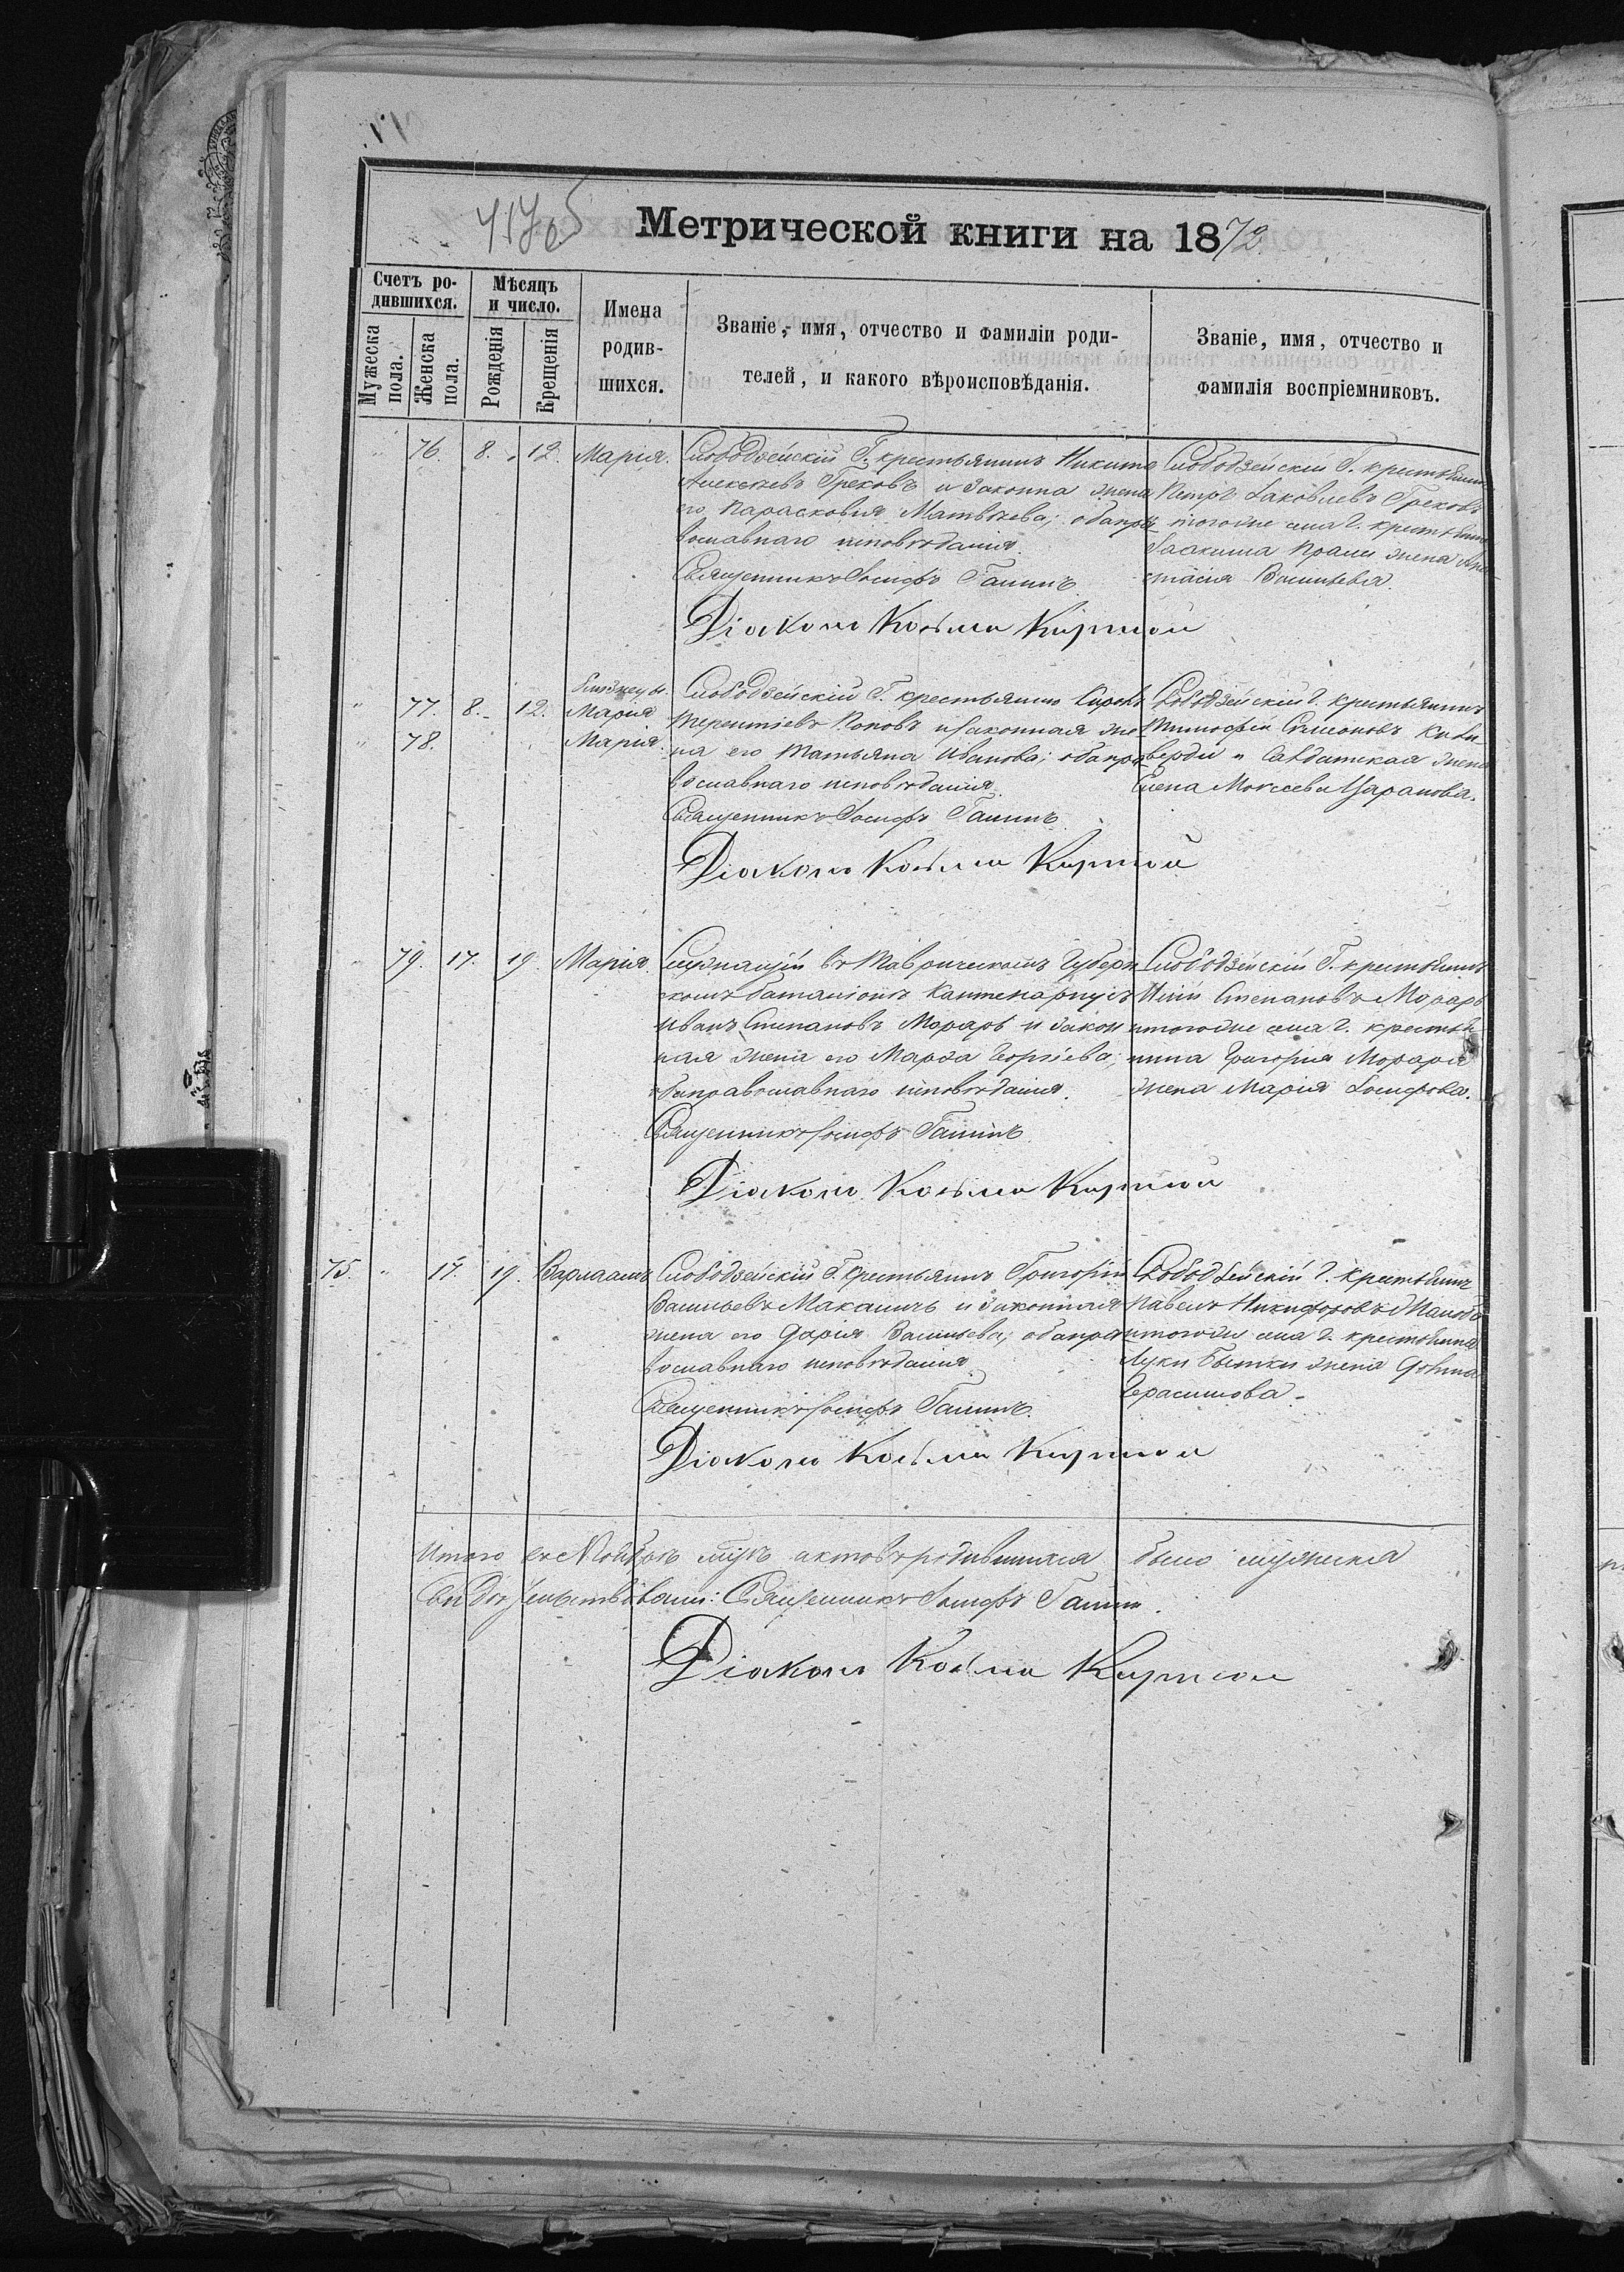 Метрической книги на 1872
Счетъ ро-
дившихся.
Мужеска
пола.
Женска
пола.
Мѣсяцъ
и число.
Рожденія
Крещенія
Имена
родив-
шихся.
Званіе, имя, отчество и фамиліи роди-
телей, и какого вѣроисповѣданія.
Званіе, имя, отчество и
фамилія воспріемниковъ.
76. 8. 12. Марія.
Слободзейскій Г. крестьянинъ Никита
Алексѣевъ Грековъ и Законна жена
его Парасковія Матвѣева; оба пра
вославнаго исповѣданія.
Священникъ Іосифъ
Діаконъ Косьма
Слободзейскій Г. крестьянин
Петръ Іаковлевъ Грековъ
и тогоже села Г. крестьянина
жена Ана
стасія Васильева.
близнецы.
77. 8. 12. Марія
78. Марія.
Слободзейскій Г. крестьянинъ
Терентіевъ Поповъ и Законная же
на его Татьяна Иванова; оба пра
вославнаго исповѣданія.
Священникъ Іосифъ
Діаконъ Косьма
Слободзейскій Г. крестьянинъ
Тимофей Симеоновъ
и Салдатская жена
Елена Моисеева Царанова.
79. 17. 19. Марія.
Служащій въ Таврическомъ Губерн
скомъ баталіонѣ Каптенармусъ
Иванъ Степановъ Мораръ и Закон
ная жена его Марѳа Георгіева;
оба православнаго исповѣданія.
Священникъ Іосифъ
Діаконъ Косьма
Слободзейскій Г. крестьянинъ
Степановъ Мораръ
и тогоже села Г. крестья
нина Григорія Мораря
жена Марія Іосифова.
75. 17. 19. Варлаамъ
Слободзейскій Г. крестьянинъ Григорій
Васильевъ и Законная
жена его Дарія Васильева; оба пра
вославнаго исповѣданія
Священникъ Іосифъ
Діаконъ Косьма
Слободзейскій Г. крестьянинъ
Павелъ Никифоровъ
и тогоже села Г. крестьянина
Луки жена
Герасимова.
Итого въ Ноябрѣ актовъ родившихся было мужеска
Свидѣтельствовали: Священникъ Іосифъ
Діаконъ Косьма